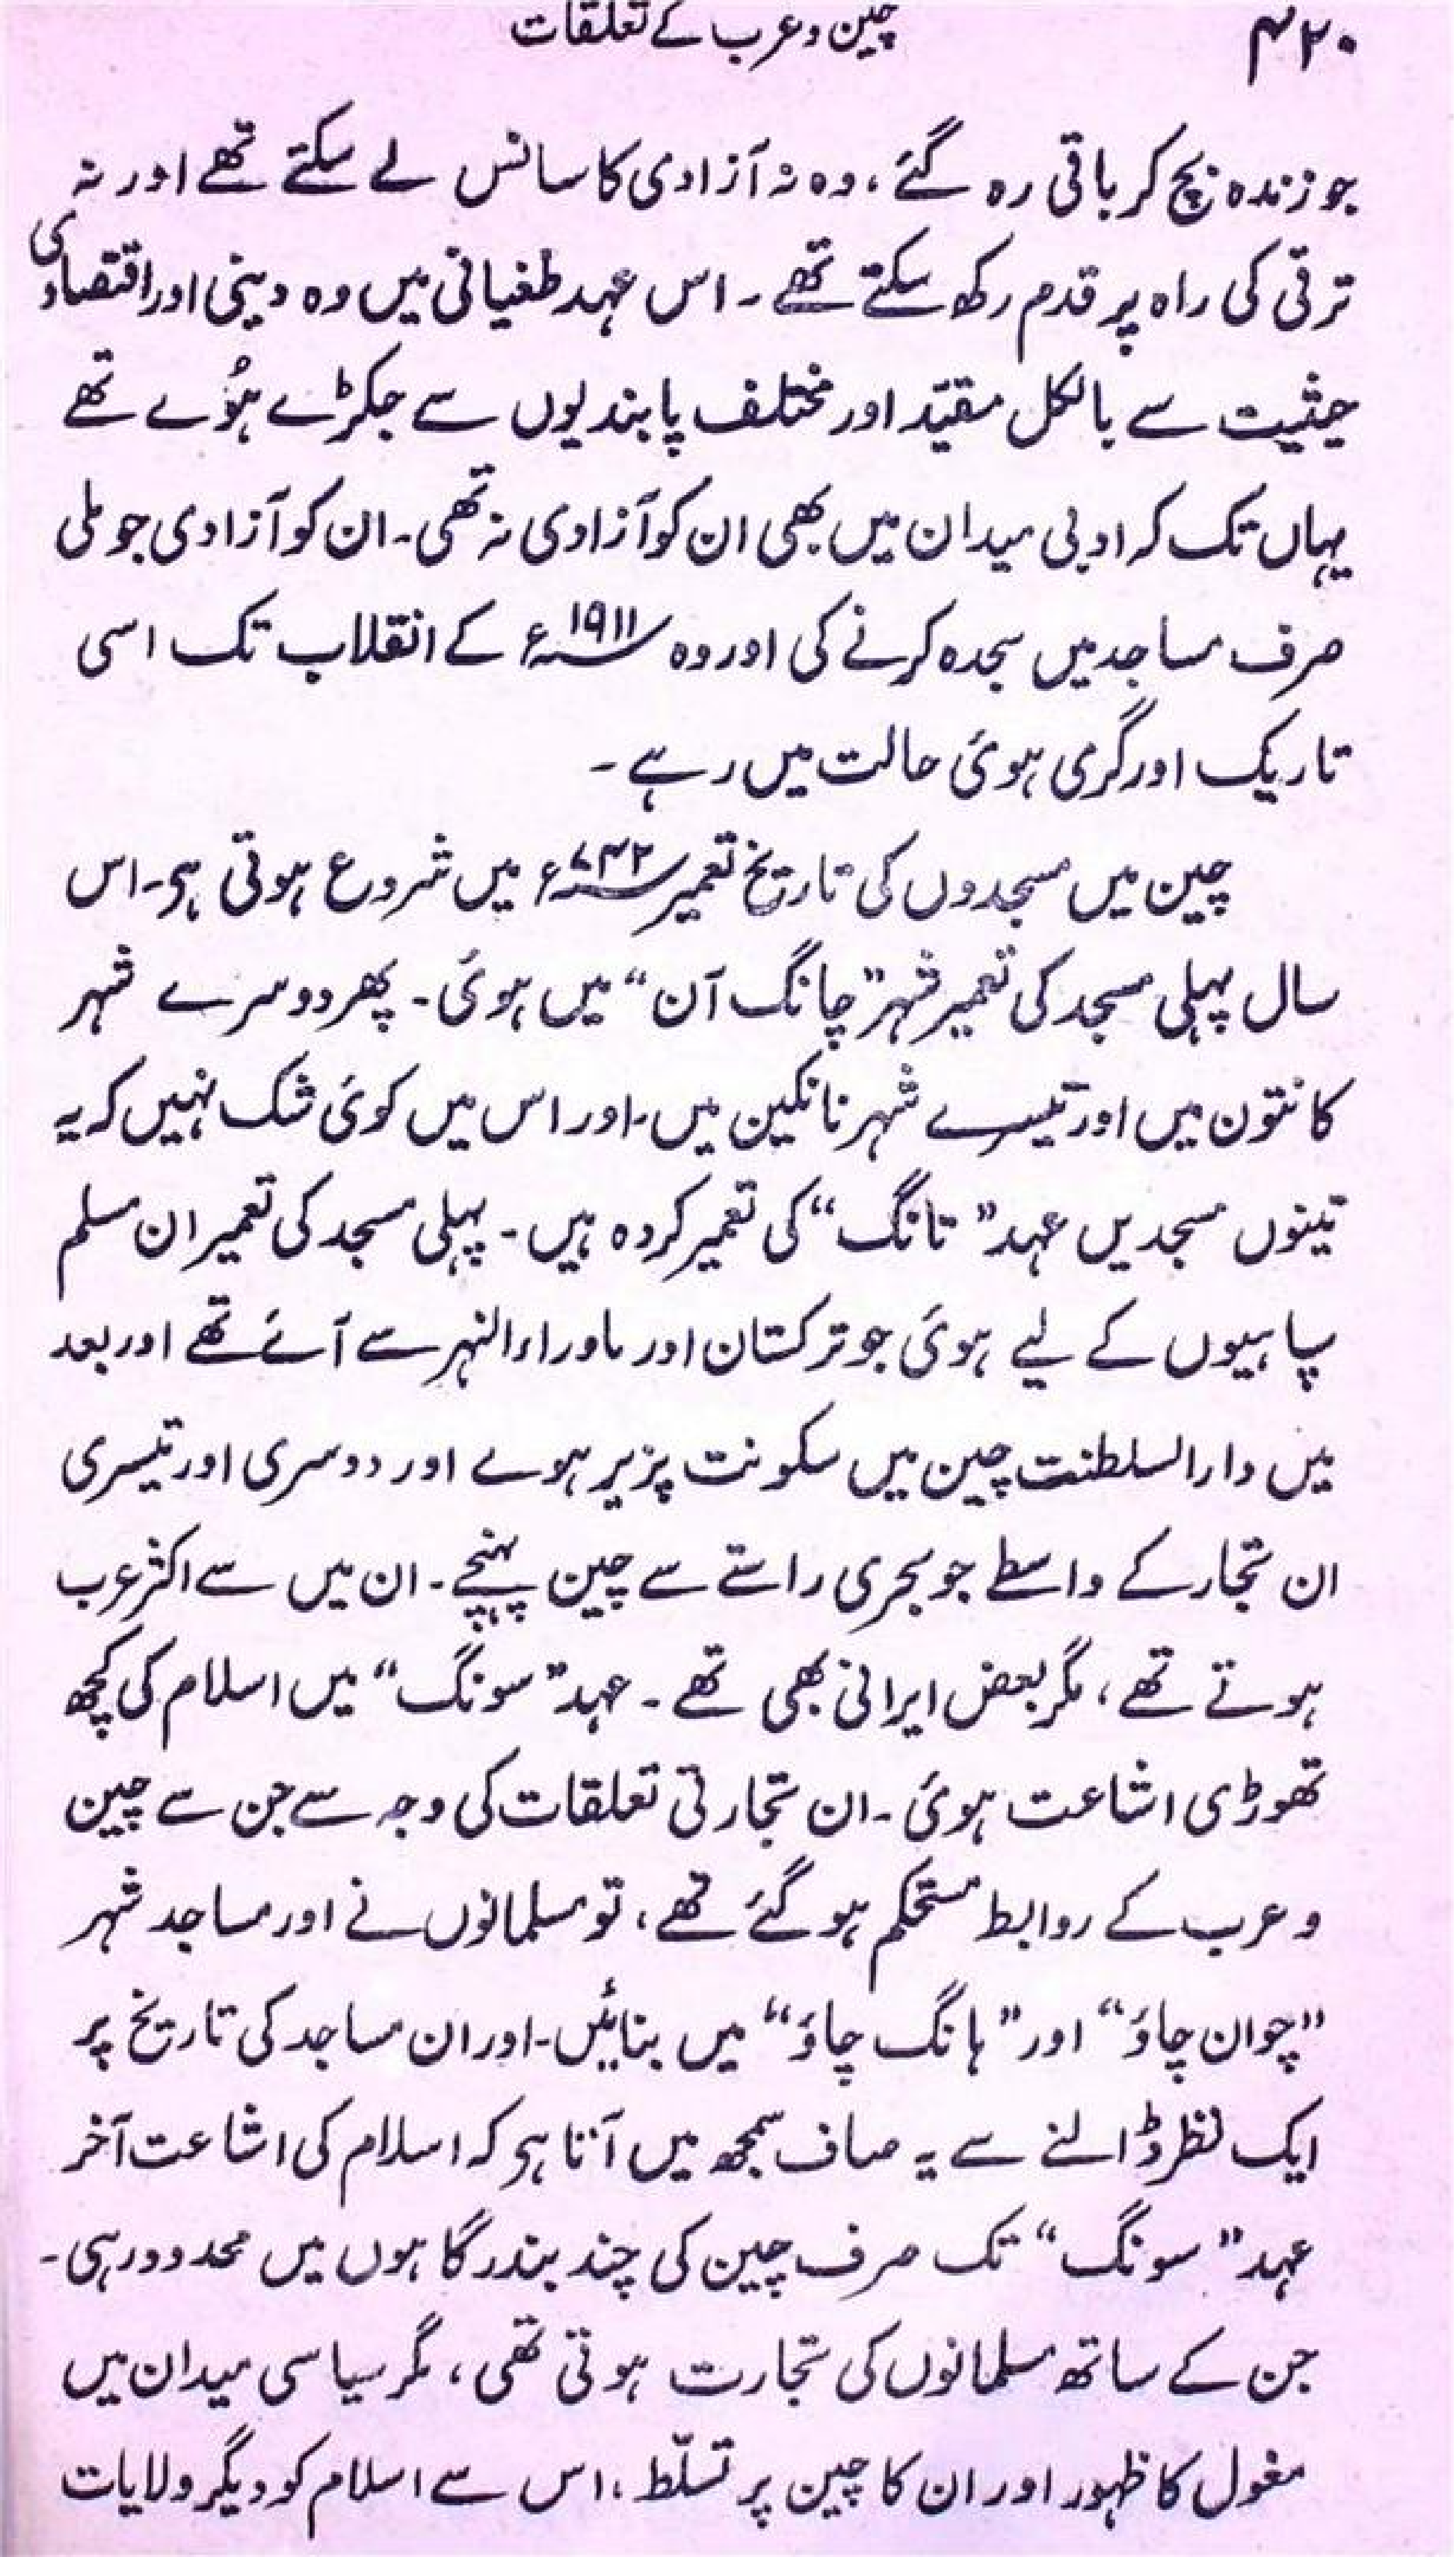 ۴۲۰
چین و عرب کے تعلقات
جو زندہ بچ کر باقی رہ گئے، وہ نہ آزادی کا سانس لے سکتے تھے اور نہ
ترقی کی راہ پر قدم رکھ سکتے تھے ۔ اس عہد طغیانی میں وہ دینی اور اقتصادی
حیثیت سے بالکل مقیّد اور مختلف پابندیوں سے جکڑے ہوُے تھے
یہاں تک کہ ادبی میدان میں بھی ان کو آزادی نہ تھی۔ ان کو آزادی جو ملی
صرف مساجد میں سجدہ کرنے کی اور وہ ۱۹۱۱ء کے انقلاب تک اسی
تاریک اور گری ہوئی حالت میں رہے ۔
چین میں مسجدوں کی تاریخ تعمیر ۷۴۲ء میں شروع ہوتی ہی۔ اس
سال پہلی مسجد کی تعمیر شہر ”چانگ آن“ میں ہوئی۔ پھر دوسرے شہر
کانتون میں اور تیسرے شہر نانکین میں۔ اور اس میں کوئی شک نہیں کہ یہ
تینوں مسجدیں عہد ”تانگ“ کی تعمیر کردہ ہیں۔ پہلی مسجد کی تعمیر ان مسلم
سپاہیوں کے لیے ہوئی جو ترکستان اور ماوراء النہر سے آئے تھے اور بعد
میں دارالسلطنت چین میں سکونت پزیر ہوے اور دوسری اور تیسری
ان تجار کے واسطے جو بحری راستے سے چین پہنچے۔ ان میں سے اکثر عرب
ہوتے تھے، مگر بعض ایرانی بھی تھے ۔ عہد ”سونگ“ میں اسلام کی کچھ
تھوڑی اشاعت ہوئی ۔ ان تجارتی تعلقات کی وجہ سے جن سے چین
و عرب کے روابط مستحکم ہو گئے تھے، تو مسلمانوں نے اور مساجد شہر
”چوان چاؤ“ اور ”ہانگ چاؤ“ میں بنائیں۔ اور ان مساجد کی تاریخ پر
ایک نظر ڈالنے سے یہ صاف سمجھ میں آتا ہی کہ اسلام کی اشاعت آخر
عہد ”سونگ“ تک صرف چین کی چند بندرگاہوں میں محدود رہی۔
جن کے ساتھ مسلمانوں کی تجارت ہوتی تھی، مگر سیاسی میدان میں
مغول کا ظہور اور ان کا چین پر تسلّط، اس سے اسلام کو دیگر ولایات